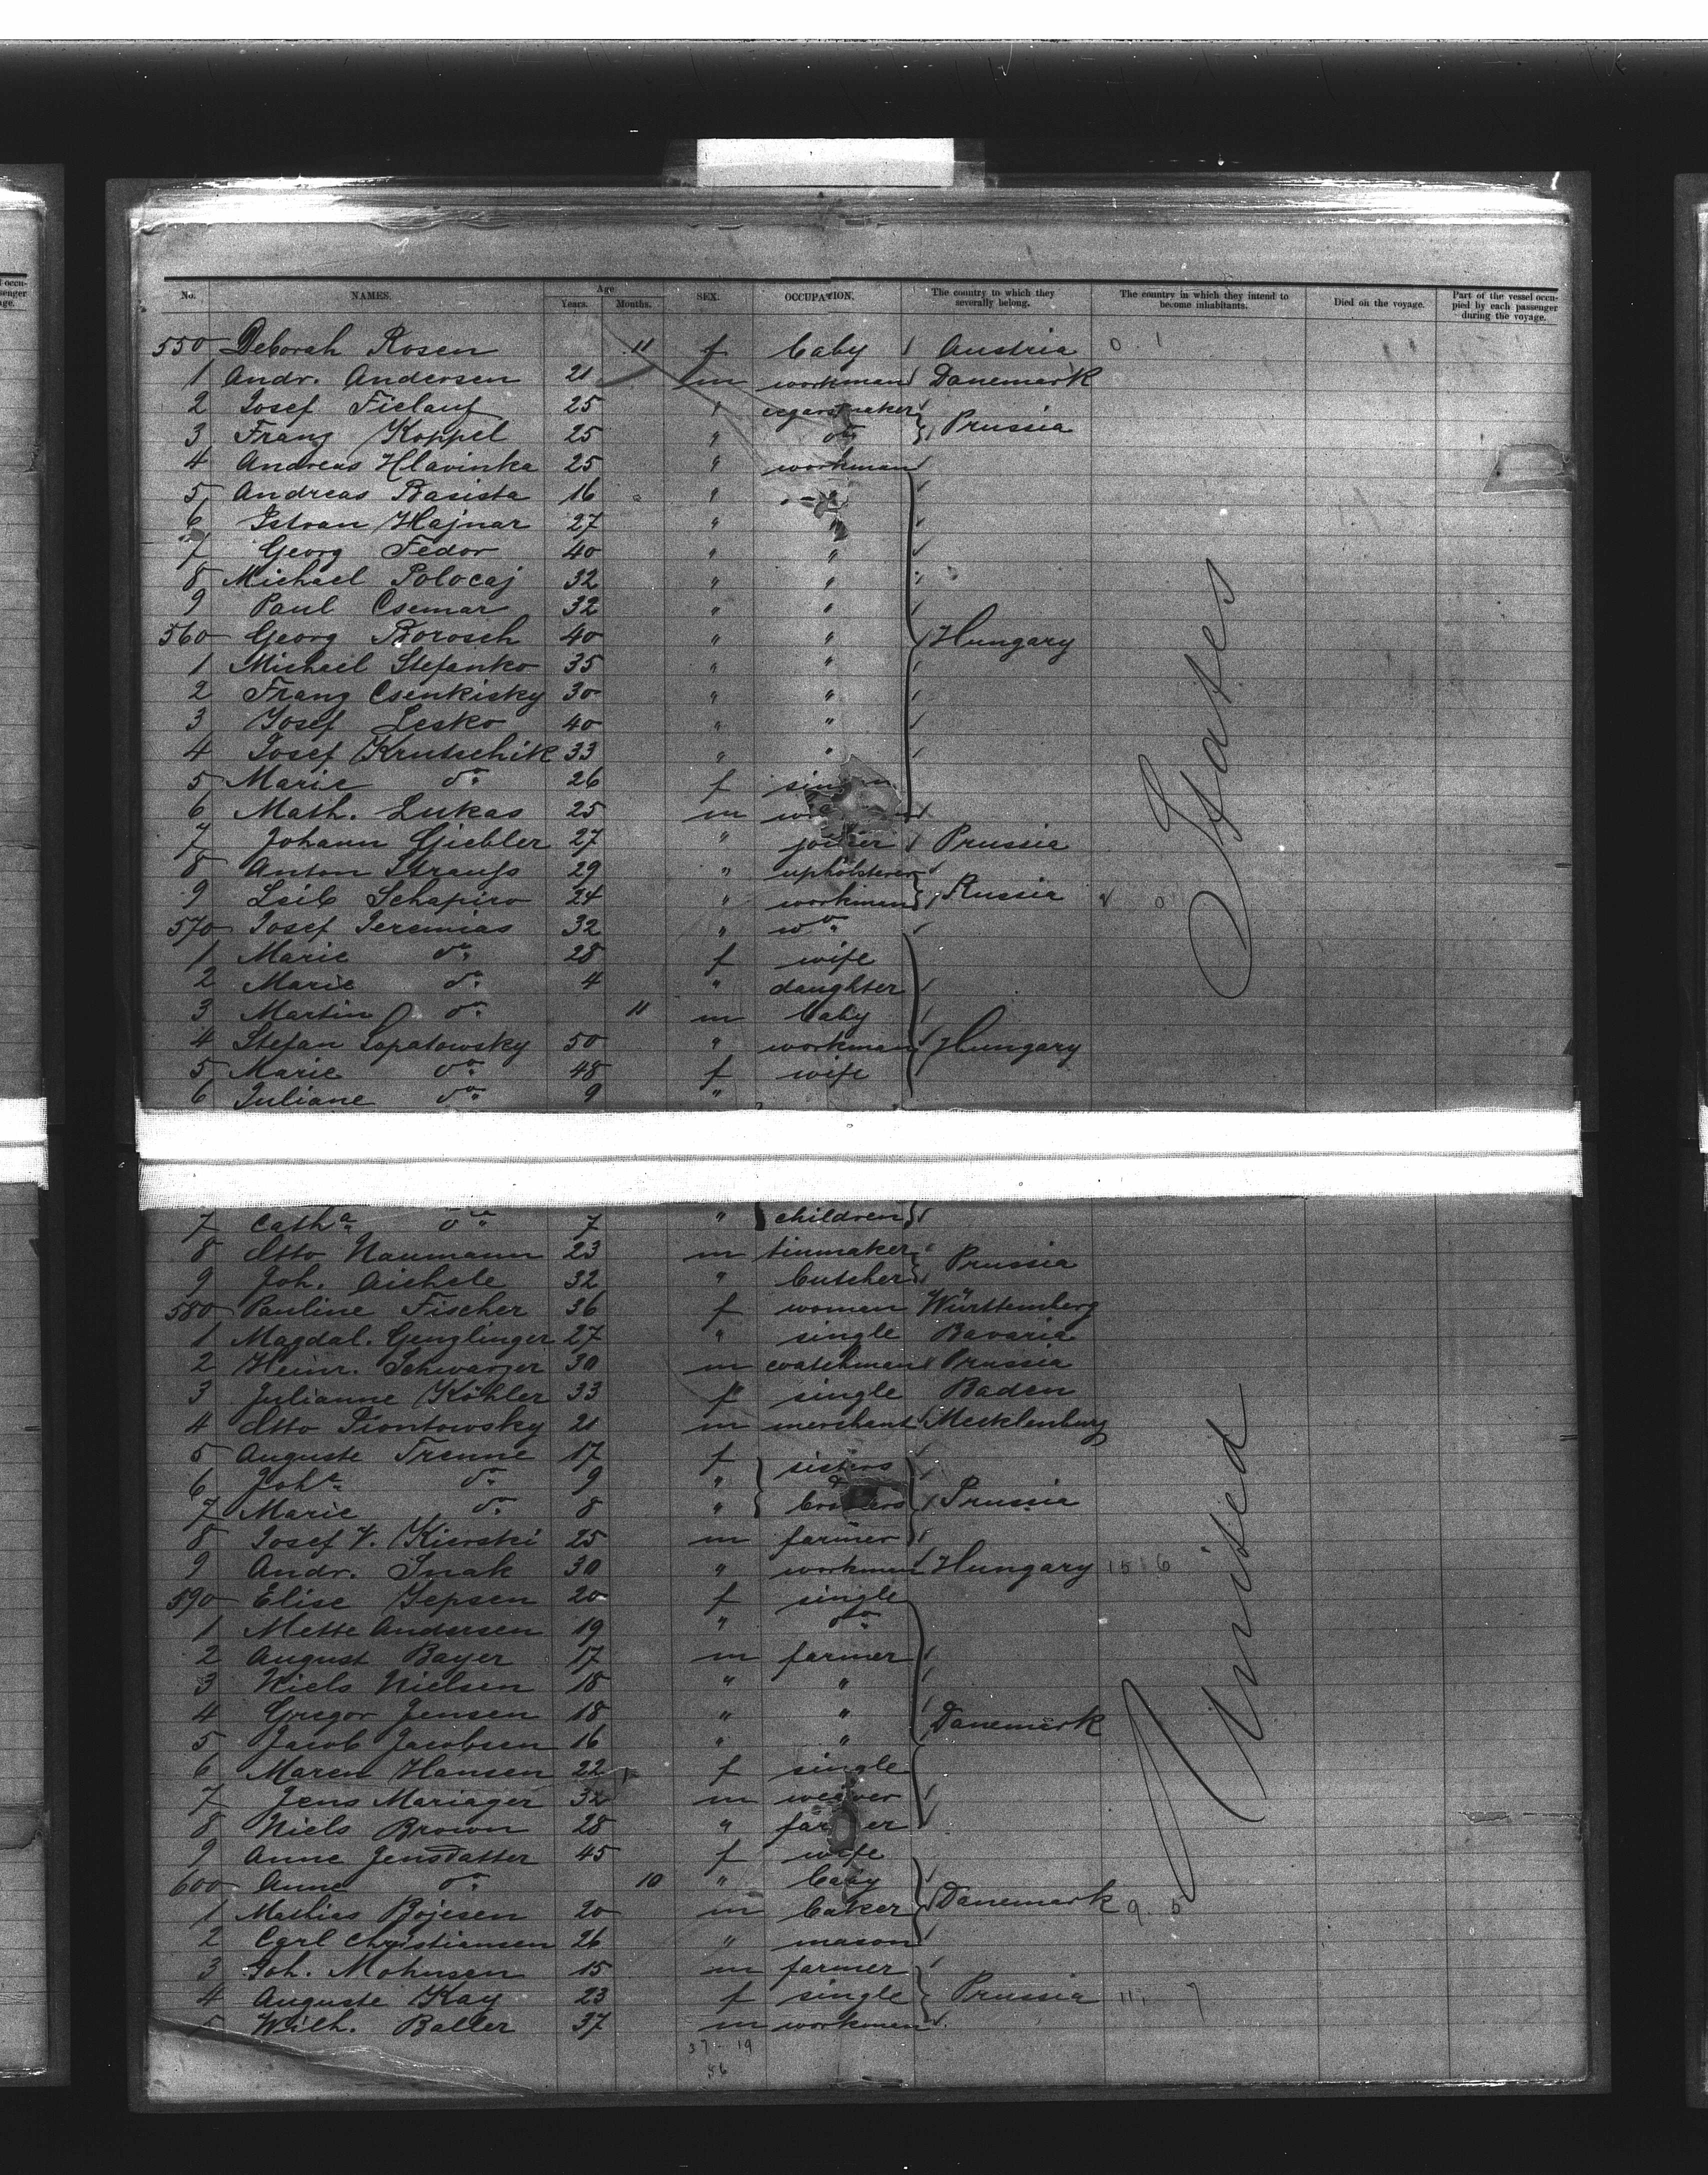 No. NAMES. Age Years. Months. SEX. OCCUPATION. The country to which they severally belong. The country in which they intend to become inhabitants. Died on the voyage. Part of the vessel occupied by each passenger during the voyage.
550 Deborah Rosen 11 f baby Austria 0 1
1 Andr. Andersen 21 m workman Danemark
2 Josef Fielauf 25 " cigarsmaker
3 Franz Koppel 25 " do Prussia
4 Andreas Hlavinka 25 " workman
5 Andreas Basista 16 "
6 Istvan Hajnar 27 " "
7 Georg Fedor 40 " "
8 Michael Polocaj 32 " "
9 Paul Csemar 32 " "
560 Georg Borosch 40 " " Hungary
1 Michael Stefanko 35 " "
2 Franz Csenkisky 30 " "
3 Josef Lesko 40 " "
4 Josef Krutschik 33 " "
5 Marie do 26 f
6 Math. Lukas 25 m
7 Johann Giebler 27 " joiner Prussia
8 Anton Strauss 29 " upholsterer
9 Leib Schapiro 24 " workman Russia
570 Josef Jeremias 32 "
1 Marie do 28 f wife
2 Marie do 4 " daughter
3 Martin do 11 m baby
4 Stefan Lopatowsky 50 " workman Hungary
5 Marie do 48 f wife
6 Juliane do 9 "
7 Catha do 7 " children
8 Otto Naumann 23 m tinmaker
9 Joh. Aichele 32 " butcher Prussia
580 Pauline Fischer 36 f women Württemberg
1 Magdal. Genzlinger 27 " single Bavaria
2 Heinr. Schwarzer 30 m coatchman Prussia
3 Julianne Köhler 33 f single Baden
4 Otto Piontowsky 21 m merchant Mecklenburg
5 Auguste Trenne 17 f sisters
6 Joha do 9 " &
7 Marie do 8 " brothers Prussia
8 Josef V. Kierski 25 m farmer
9 Andr. Snak 30 " workman Hungary 15 6
590 Elise Jepsen 20 f single
1 Mette Andersen 19 " do
2 August Bayer 17 m farmer
3 Niels Nielsen 18 " "
4 Gregor Jensen 18 " " Danemark
5 Jacob Jacobsen 16 " "
6 Maren Hansen 22 f single
7 Jens Mariager 32 m weaver
8 Niels Brown 28 " farmer
9 Anne Jensdatter 45 f wife
600 Anne do 10 " baby
1 Mathias Bojesen 20 m baker Danemark 9. 5
2 Carl Christiansen 26 " mason
3 Joh. Mohnsen 15 m farmer
4 Auguste Kay 23 f single Prussia 11. 7
5 Wilh. Baller 37 m workmen
37 - 19
56
United States